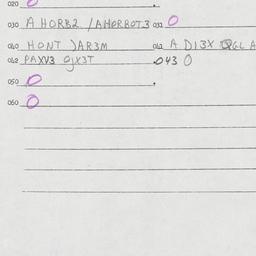 020 O
030 A HORB2 / AHORBOT3 031 O
040 HONT JAR3M 041 A D13X
042 PAXV3 OJX3T 043 O
050 O
060 O